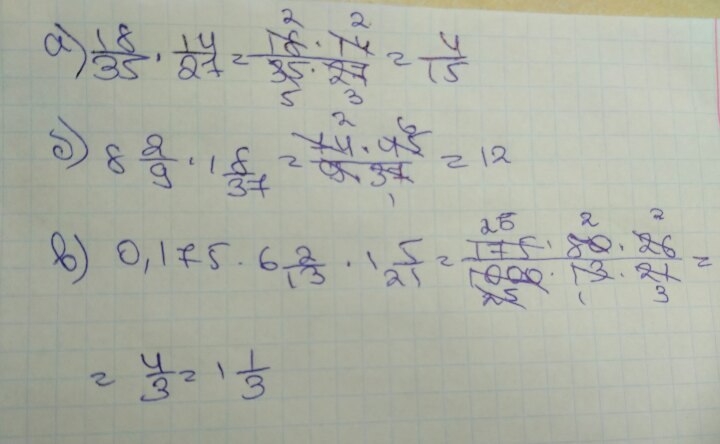 а) 18/35 · 14/27 = (18 · 14)/(35 · 27) = 4/15
2 2
5 3
б) 8 2/9 · 1 8/37 = (74 · 45)/(9 · 37) = 12
2 6
1
в) 0,175 · 6 2/13 · 1 5/21 = (175 · 80 · 26)/(1000 · 13 · 21) =
25 2 2
25 1 3
= 4/3 = 1 1/3